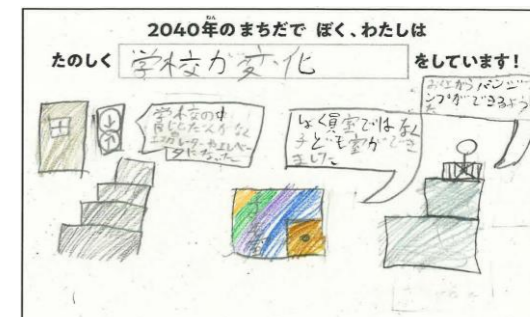 2040年のまちだで ぼく、わたしは
たのしく 学校が変化 をしています！
学校の中
エスカレーターやエレベー
ターになった
しょく員室ではなく
子ども室ができ
ました
バンジー
ジャンプができるよう